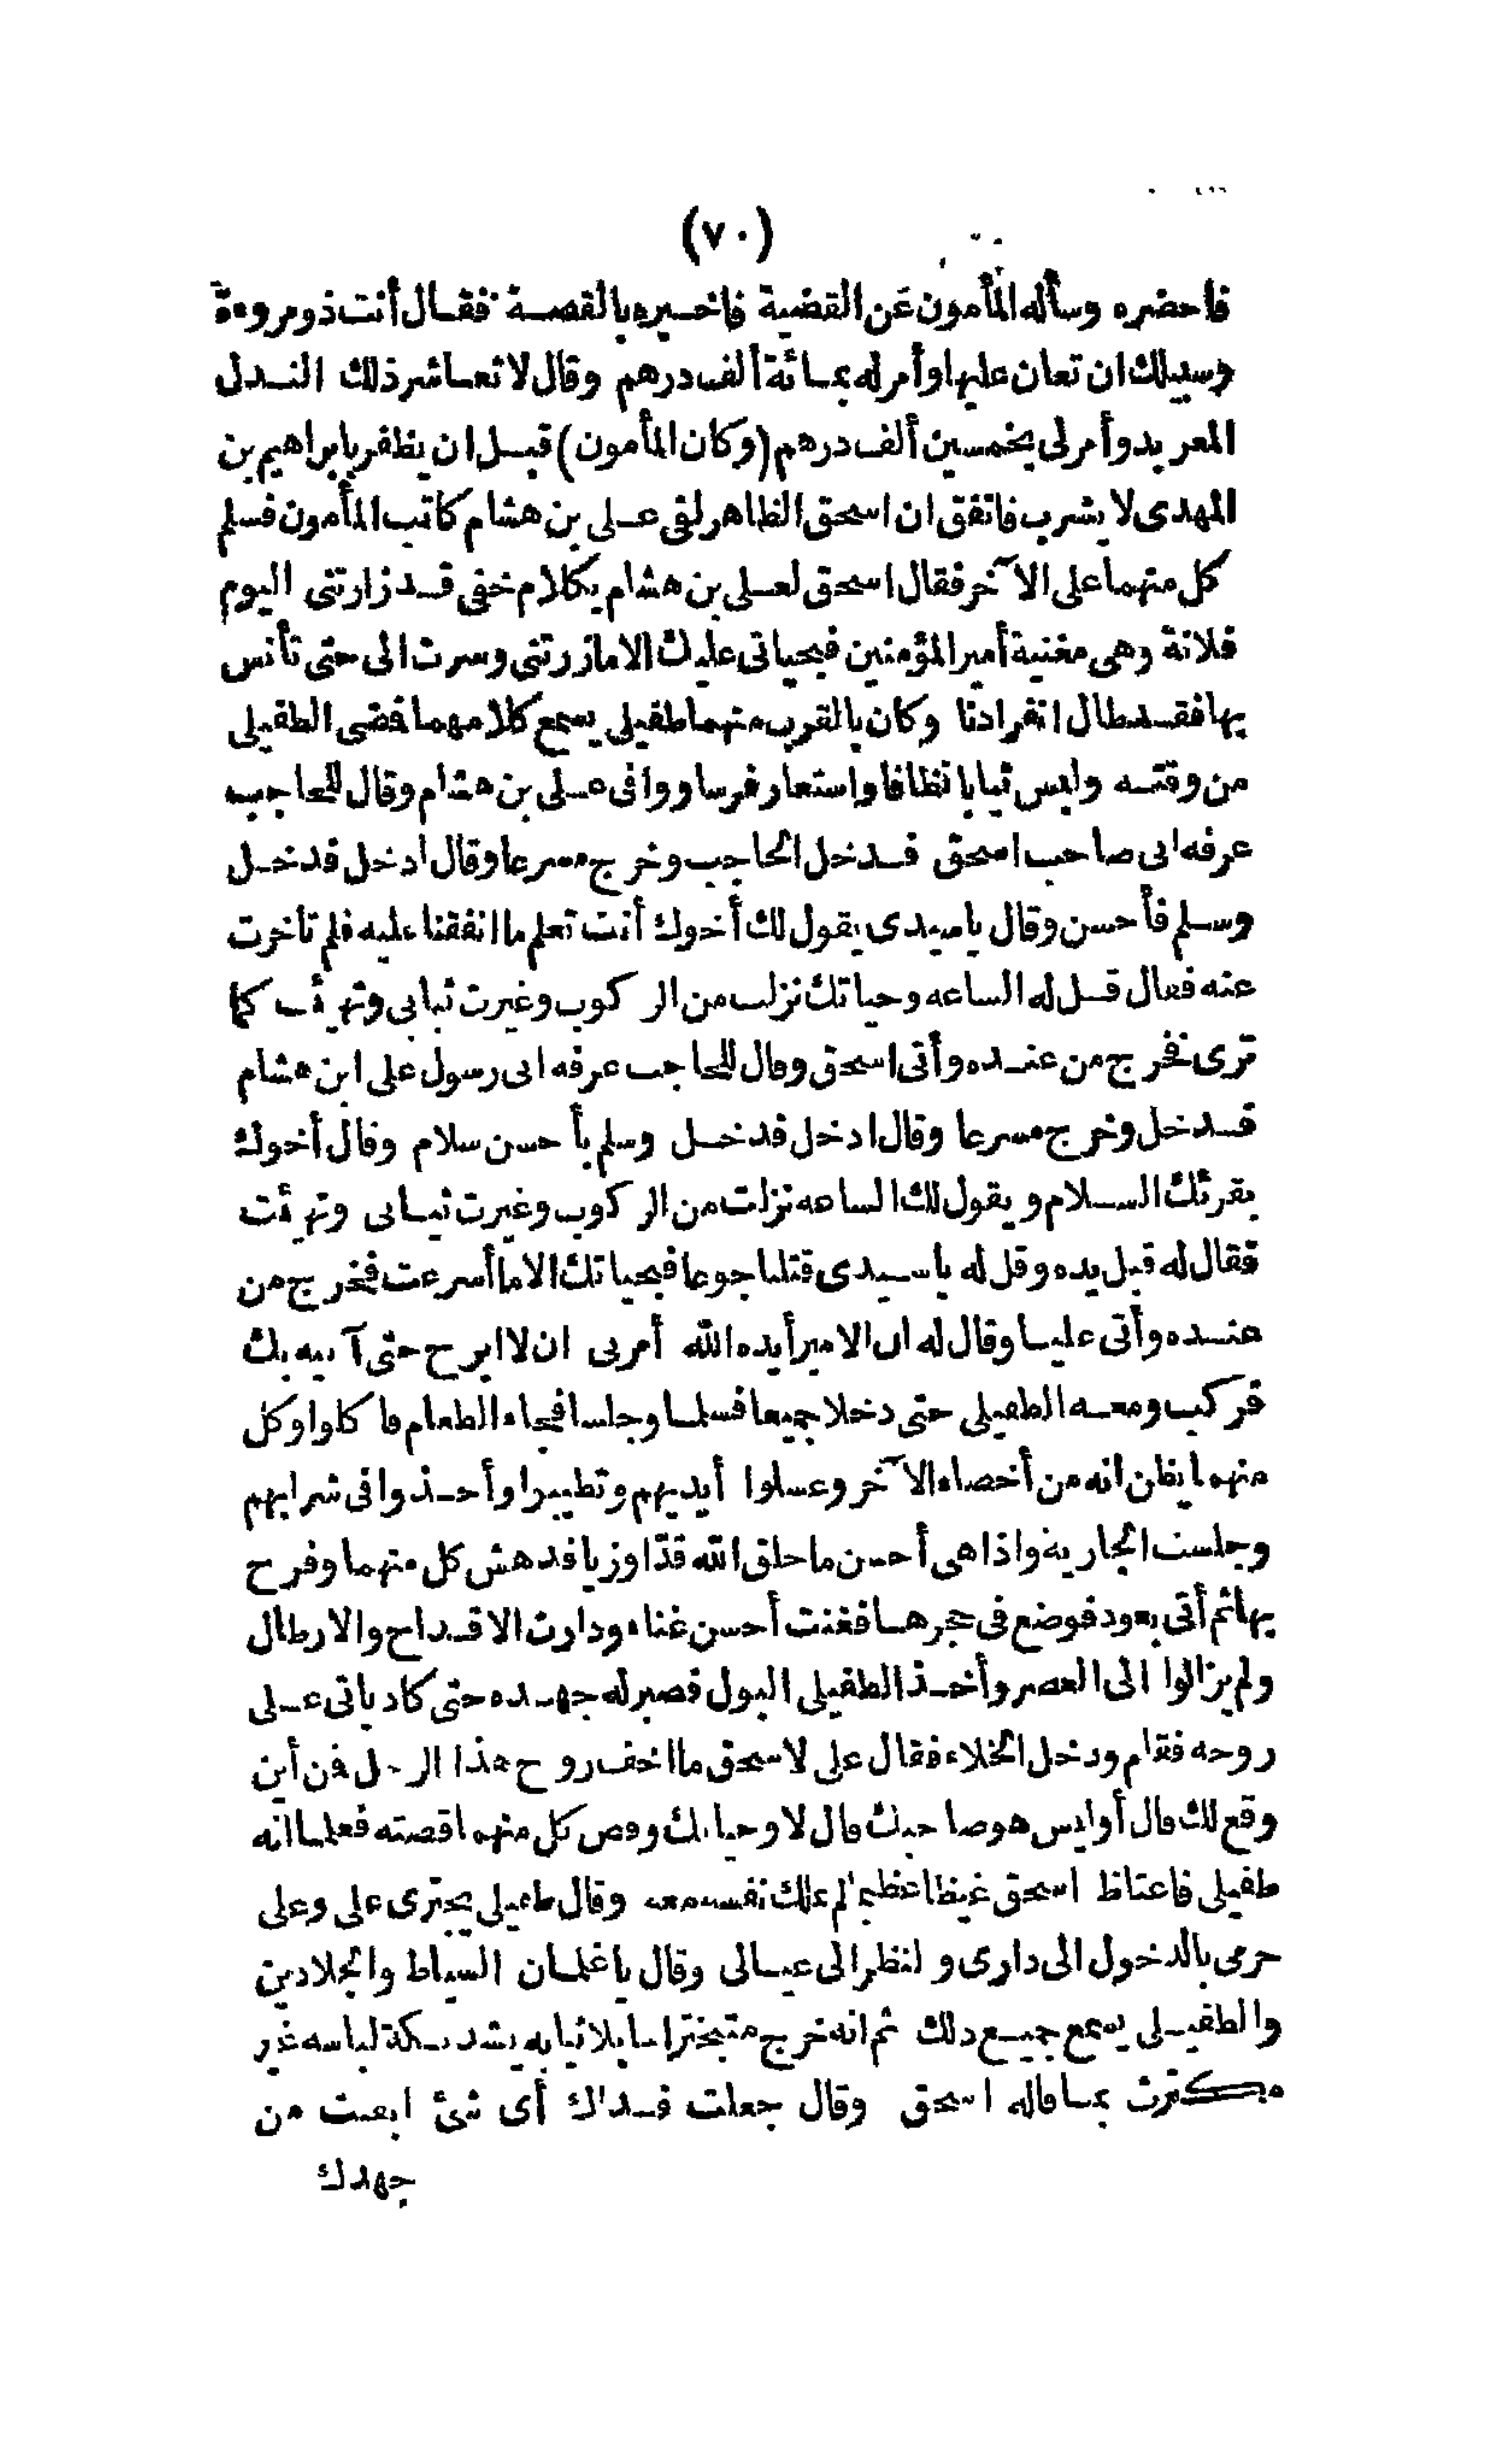 (٧٠)
فاحضره وسأله المأمون عن القضية فاخبره بالقصة فقال أنت ذومروءة
وسبيلك ان تعان عليها وأمر له بمائة ألف درهم وقال لا تعاشر ذلك النذل
المعربد وأمر لى بخمسين ألف درهم (وكان المأمون) قبل ان يظفر بابراهيم بن
المهدى لا يشرب فاتفق ان اسحق الظاهر لقى على بن هشام كاتب المأمون فسلم
كل منهما على الآخر فقال اسحق لعلى بن هشام بكلام خفى قد زارتنى اليوم
فلانة وهى مغنية أمير المؤمنين فبحياتى عليك الا ما زرتنى وسرت الى حتى تأنس
بها فقد طال انفرادنا وكان بالقرب منهما طفيلى يسمع كلامهما فضى الطفيلى
من وقته ولبس ثيابا نظافا واستعار فرسا ووافى على بن هشام وقال للحاجب
عرفه انى صاحب اسحق فدخل الحاجب وخرج مسرعا وقال ادخل فدخل
وسلم فأحسن وقال يا سيدى يقول لك أخوك أنت تعلم ما اتفقنا عليه فلم تأخرت
عنه فقال قل له الساعه وحياتك نزلت من الركوب وغيرت ثيابى وتهيأت كما
ترى فخرج من عنده وأتى اسحق وقال للحاجب عرفه انى رسول على ابن هشام
فدخل وخرج مسرعا وقال ادخل فدخل وسلم بأحسن سلام وقال أخوك
يقرئك السلام ويقول لك الساعه نزلت من الركوب وغيرت ثيابى وتهيأت
فقال له قبل يده وقل له يا سيدى قتلنا جوعا فبحياتك الا ما أسرعت فخرج من
عنده وأتى عليا وقال له ان الامير أيده الله أمرنى ان لا ابرح حتى آتيه بك
فركب ومعه الطفيلى حتى دخلا جميعا فسلما وجلسا فجاء الطعام فاكلوا وكل
منهما يظن انه من أخصاء الآخر وغسلوا أيديهم وتطيبوا وأخذوا فى شرابهم
وجلست الجارية واذا هى أحسن ما خلق الله قدّا وزيا فدهش كل منهما وفرح
بها ثم أتى بعود فوضع فى حجرها فغنت أحسن غناء ودارت الاقداح والارطال
ولم يزالوا الى العصر وأخذ الطفيلى البول فصبر له جهده حتى كاد ياتى على
روحه فقام ودخل الخلاء فقال على لاسحق ما اخف روح هذا الرجل فن أين
وقع لك قال أوليس هو صاحبك قال لا وحياتك وقص كل منهما قصته فعلما انه
طفيلى فاغتاظ اسحق غيظا عظيما لم يملك نفسه معه وقال طفيلى يجترى على وعلى
حرمى بالدخول الى دارى والنظر الى عيالى وقال يا غلمان السياط والجلادين
والطفيلى يسمع جميع ذلك ثم انه خرج متبخترا بلا ثيابه يشد تكة لباسه غير
مكترث بما قاله اسحق وقال جعلت فداك أى شئ ابعت من
جهدك